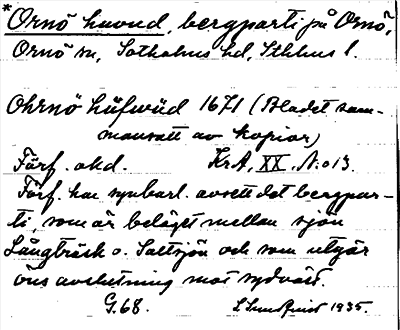 * Ornö huvud, bergparti på Ornö,
Ornö sn, Sotholms hd, Sthlms l.
Ohrnö Hüfwüd 1671 (Bladet sam-
mansatt av kopior)
Förf. okd. KrA, XX, N:o 13.
Förf. har synbarl. avsett det bergpar-
ti, som är beläget mellan sjön
Långträsk o. Saltsjön och som utgör
öns avslutning mot sydväst.
G.68. 1935.